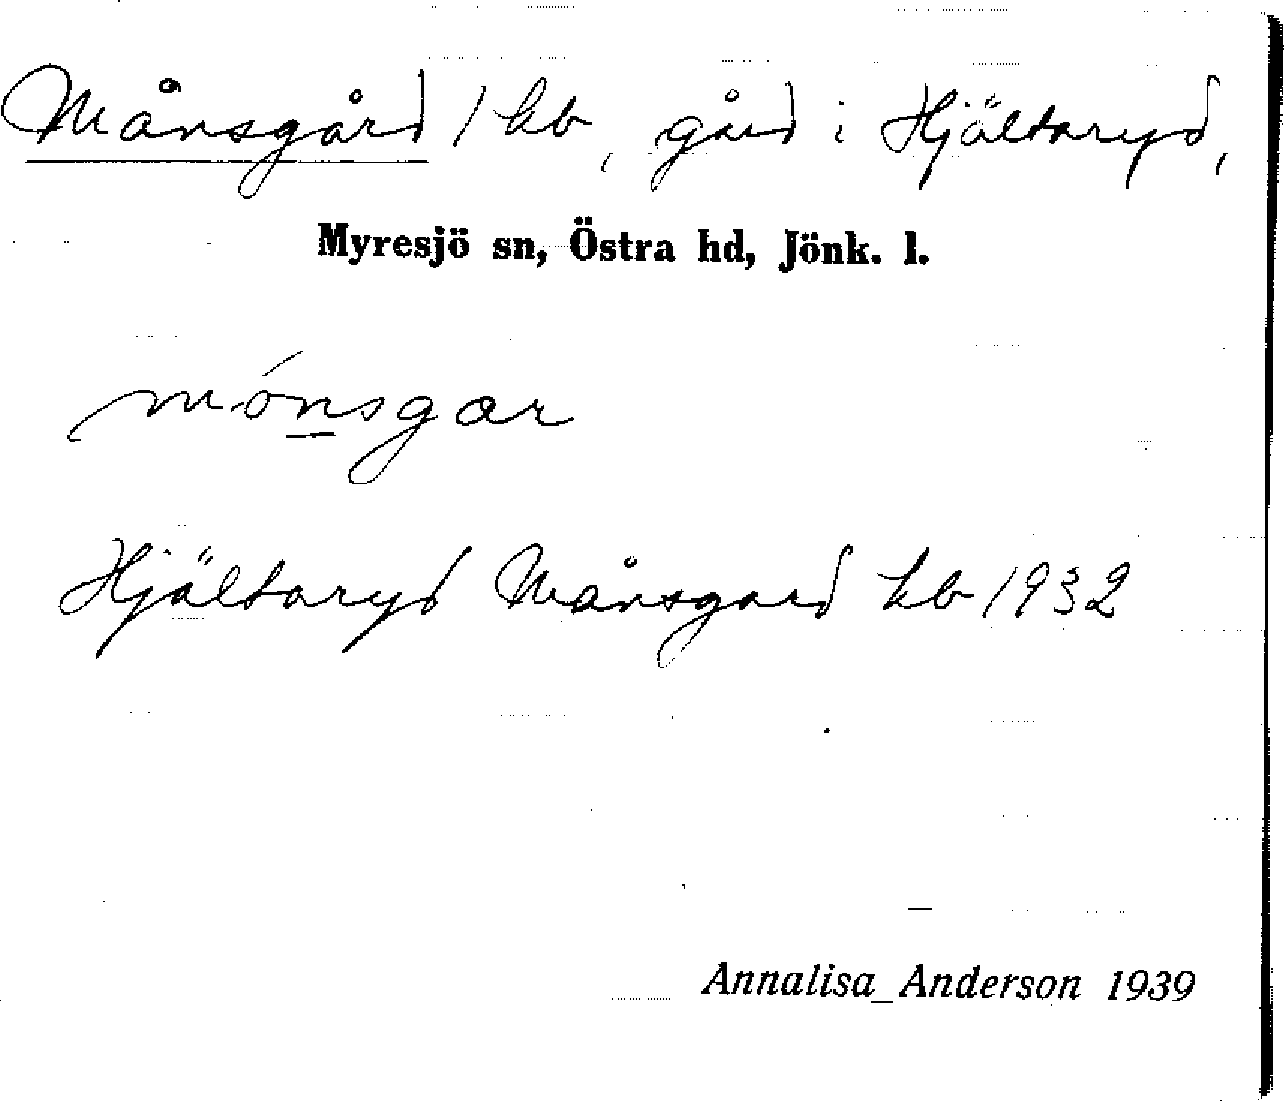 Månsgård / kb, gård i Hjältaryd,
Myresjö sn, Östra hd, Jönk. l.
mónsgar
Hjältaryd Månsgård kb 1932
Annalisa Anderson 1939